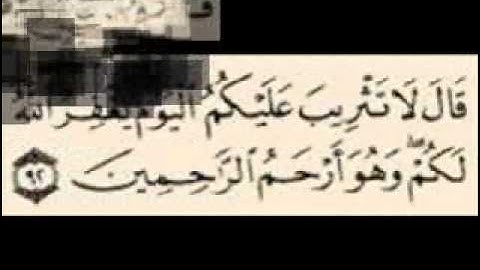 قَالَ لَا تَثْرِيبَ عَلَيْكُمُ الْيَوْمَ يَغْفِرُ اللَّهُ
لَكُمْ ۖ وَهُوَ أَرْحَمُ الرَّاحِمِينَ ٩٢